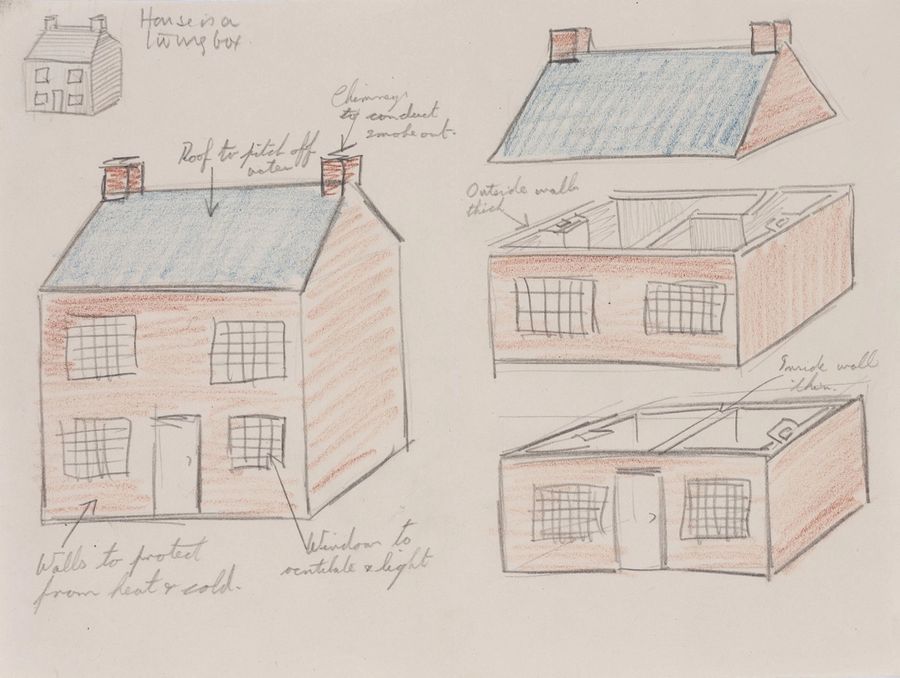 House is a
living box.
Chimneys
to conduct
smoke out.
Roof to pitch off
water
Outside walls
thick
Inside wall
thin.
Walls to protect
from heat & cold.
Window to
ventilate & light